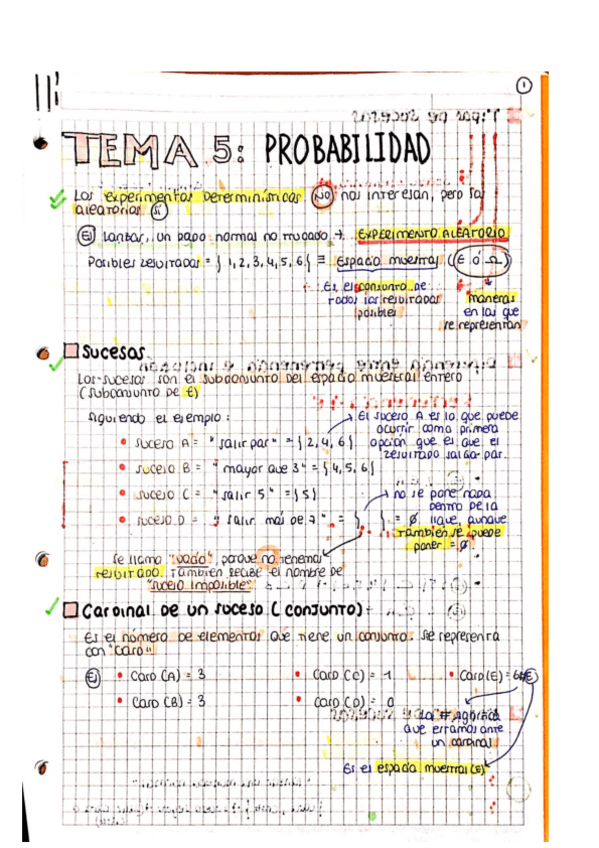 1
TEMA 5: PROBABILIDAD
Los experimentos determinísticos NO nos interesan, pero los
aleatorios SÍ
EJ Lanzar un dado normal no trucado → EXPERIMENTO ALEATORIO
Posibles resultados = { 1, 2, 3, 4, 5, 6 } ≡ Espacio muestral (E ó Ω)
Es el conjunto de
todos los resultados
posibles
maneras
en las que
se representan
Sucesos
Los sucesos son el subconjunto del espacio muestral entero
(subconjunto de E)
Siguiendo el ejemplo:
• Suceso A = "salir par" = { 2, 4, 6 }
→ El suceso A es lo que puede
ocurrir como primera
opción que es que el
resultado salga par.
• Suceso B = "mayor que 3" = { 4, 5, 6 }
• Suceso C = "salir 5" = { 5 }
• Suceso D = "salir más de 7" = { } = ∅
→ no se pone nada
dentro de la
llave, aunque
también se puede
poner = ∅
Se llama "vacío", porque no tenemos
resultado. También recibe el nombre de
"suceso imposible"
Cardinal de un suceso (conjunto)
Es el número de elementos que tiene un conjunto. Se representa
con "card"
EJ • Card (A) = 3 • Card (C) = 1 • Card (E) = 6 #E
• Card (B) = 3 • Card (D) = 0
La #
que estamos ante
un cardinal
Es el espacio muestral (E)